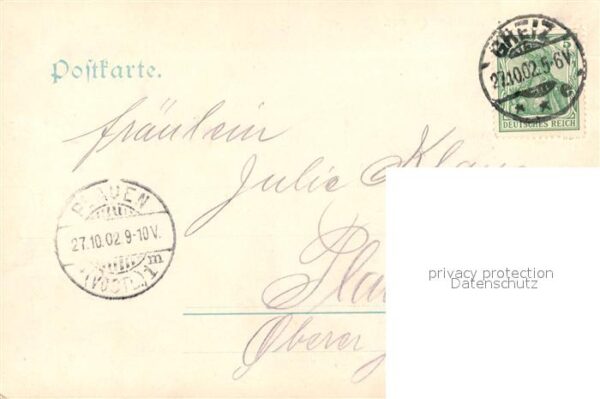 Postkarte.
GREIZ
27.10.02.5-6V.
* * c
5
DEUTSCHES REICH
Fräulein
Julie
Pla
Oberer
PLAUEN
27.10.02.9-10V.
(VOGTL.) 1m
privacy protection
Datenschutz